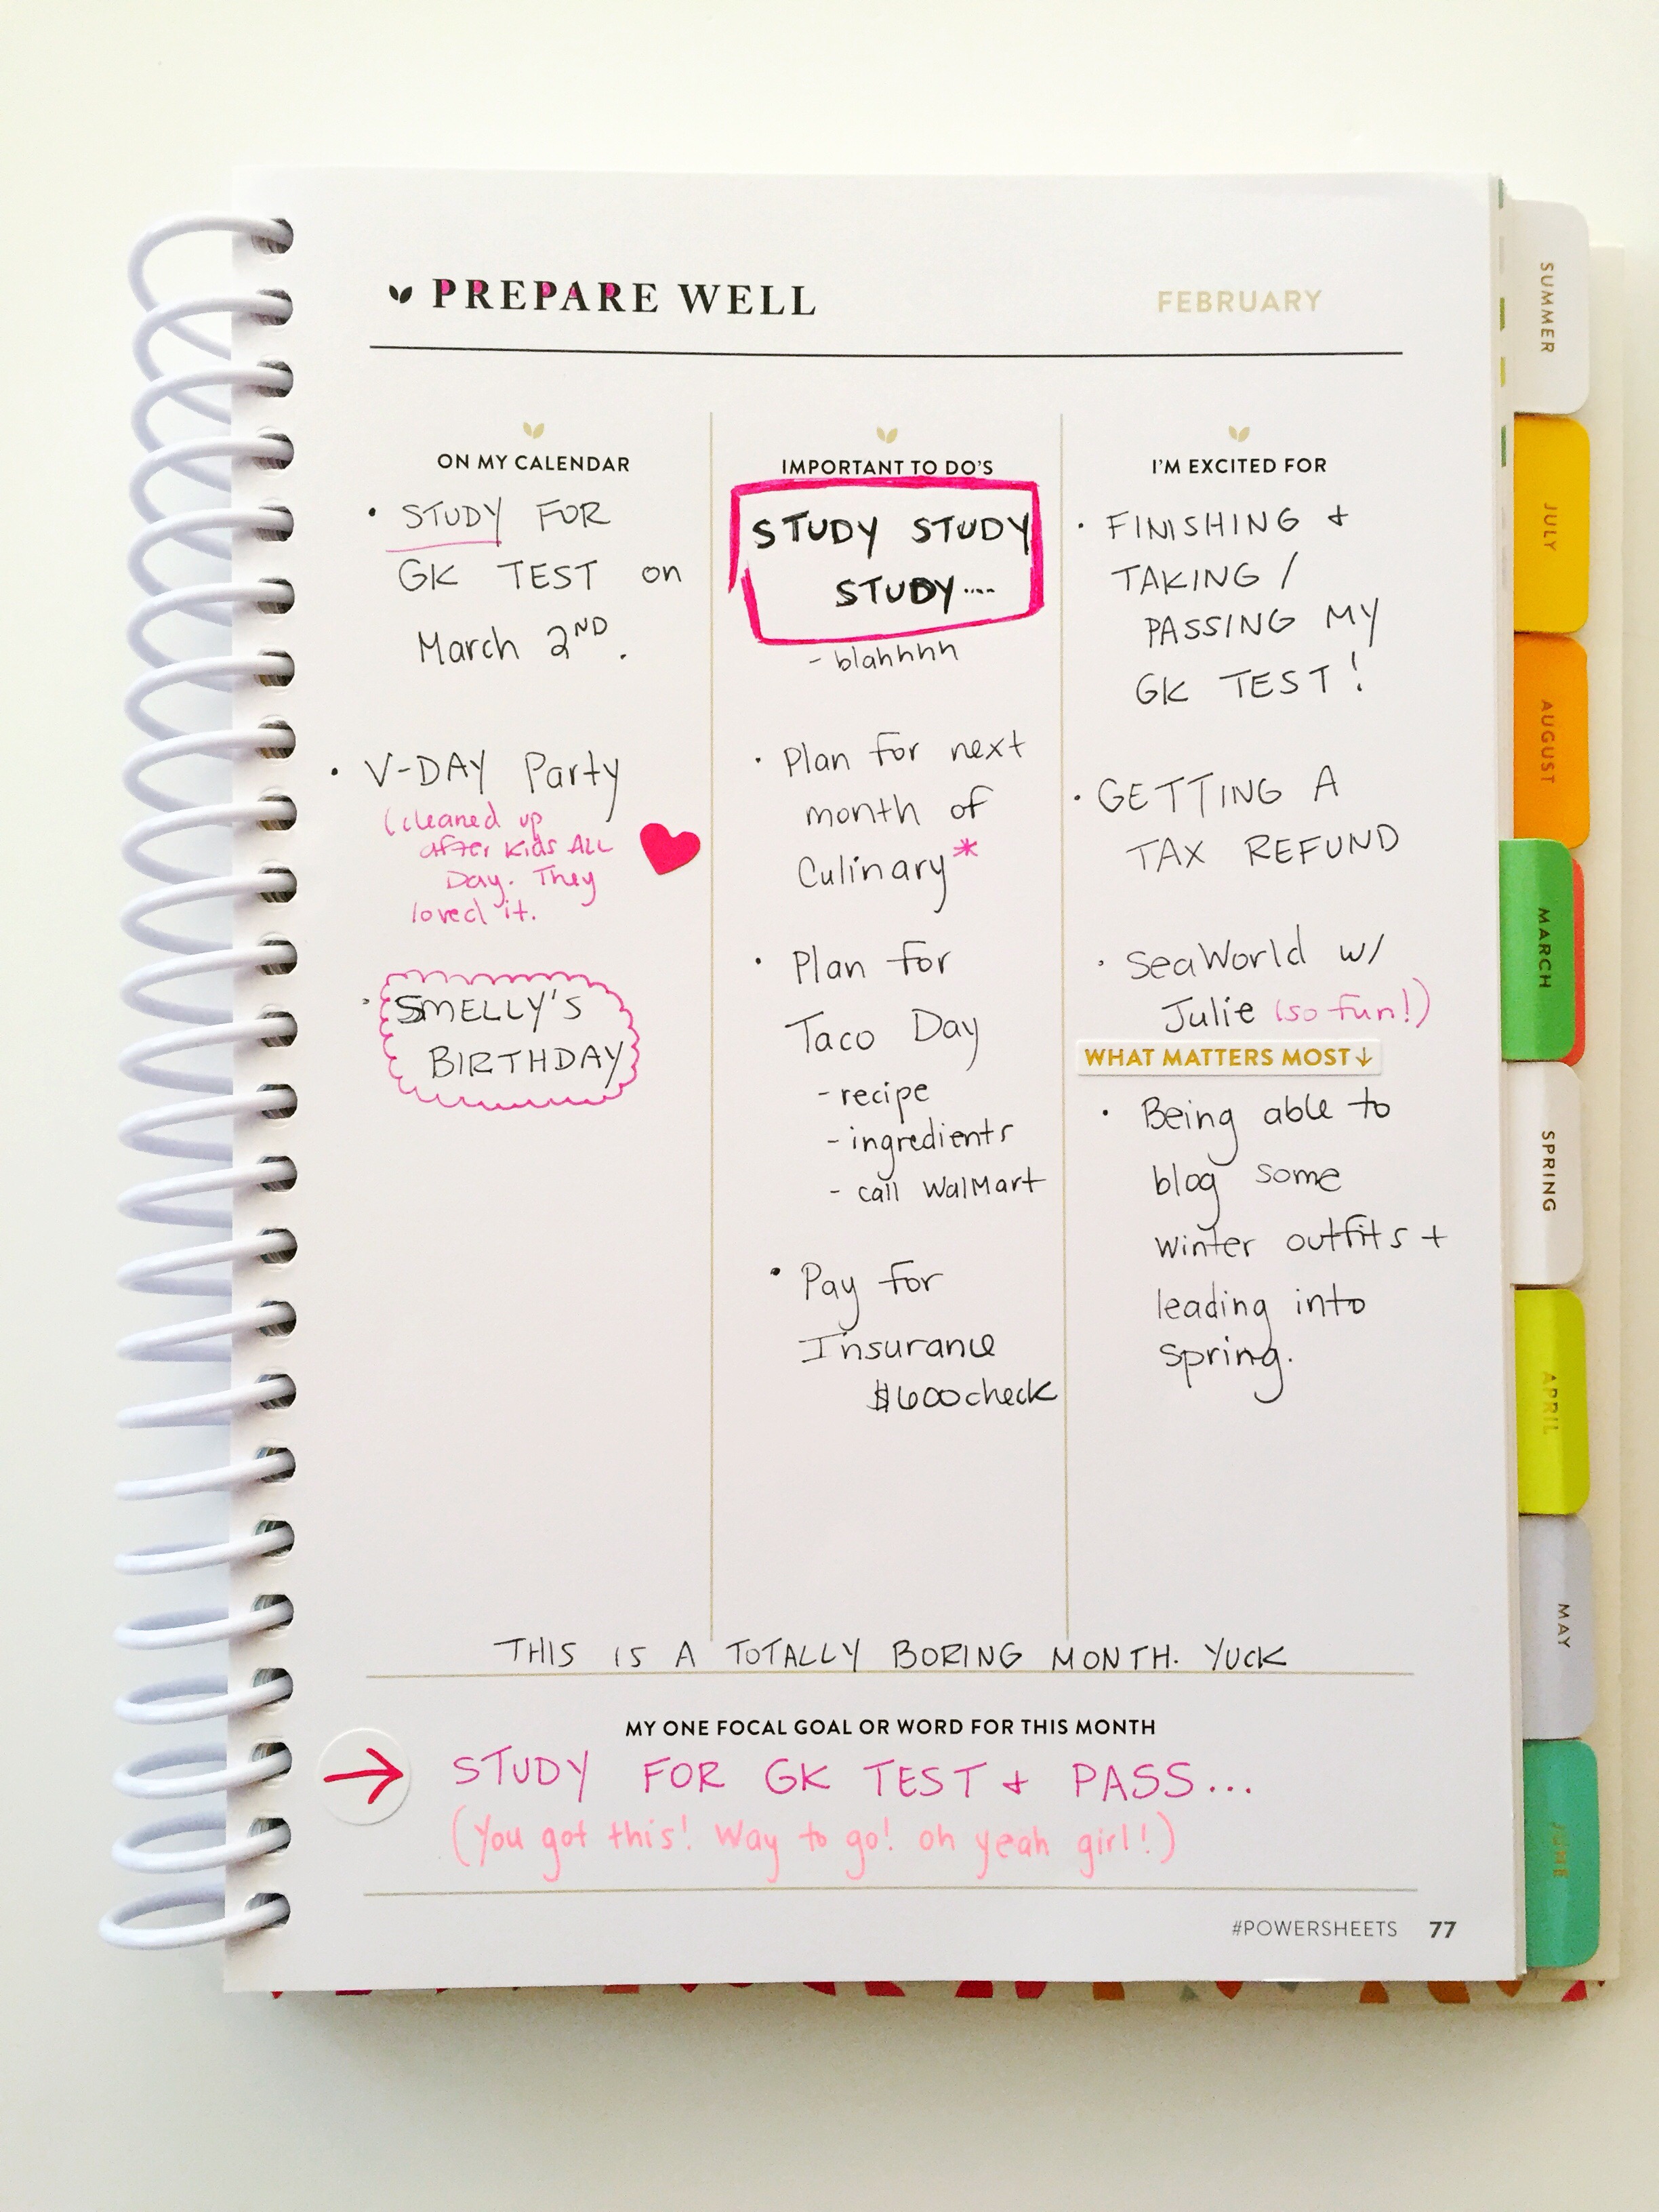 PREPARE WELL
FEBRUARY
ON MY CALENDAR
• STUDY FOR
GK TEST on
March 2ND.
• V-DAY Party
(cleaned up
after kids ALL
Day. They
loved it.
• SMELLY'S
BIRTHDAY
IMPORTANT TO DO'S
STUDY STUDY
STUDY....
- blahhhh
• Plan for next
month of
Culinary*
• Plan for
Taco Day
- recipe
- ingredients
- call WalMart
• Pay for
Insurance
$600 check
I'M EXCITED FOR
• FINISHING +
TAKING /
PASSING MY
GK TEST!
• GETTING A
TAX REFUND
• SeaWorld w/
Julie (so fun!)
WHAT MATTERS MOST↓
• Being able to
blog some
winter outfits +
leading into
spring.
THIS IS A TOTALLY BORING MONTH. YUCK
MY ONE FOCAL GOAL OR WORD FOR THIS MONTH
→ STUDY FOR GK TEST + PASS...
(You got this! Way to go! oh yeah girl!)
#POWERSHEETS 77
SUMMER
JULY
AUGUST
MARCH
SPRING
APRIL
MAY
JUNE